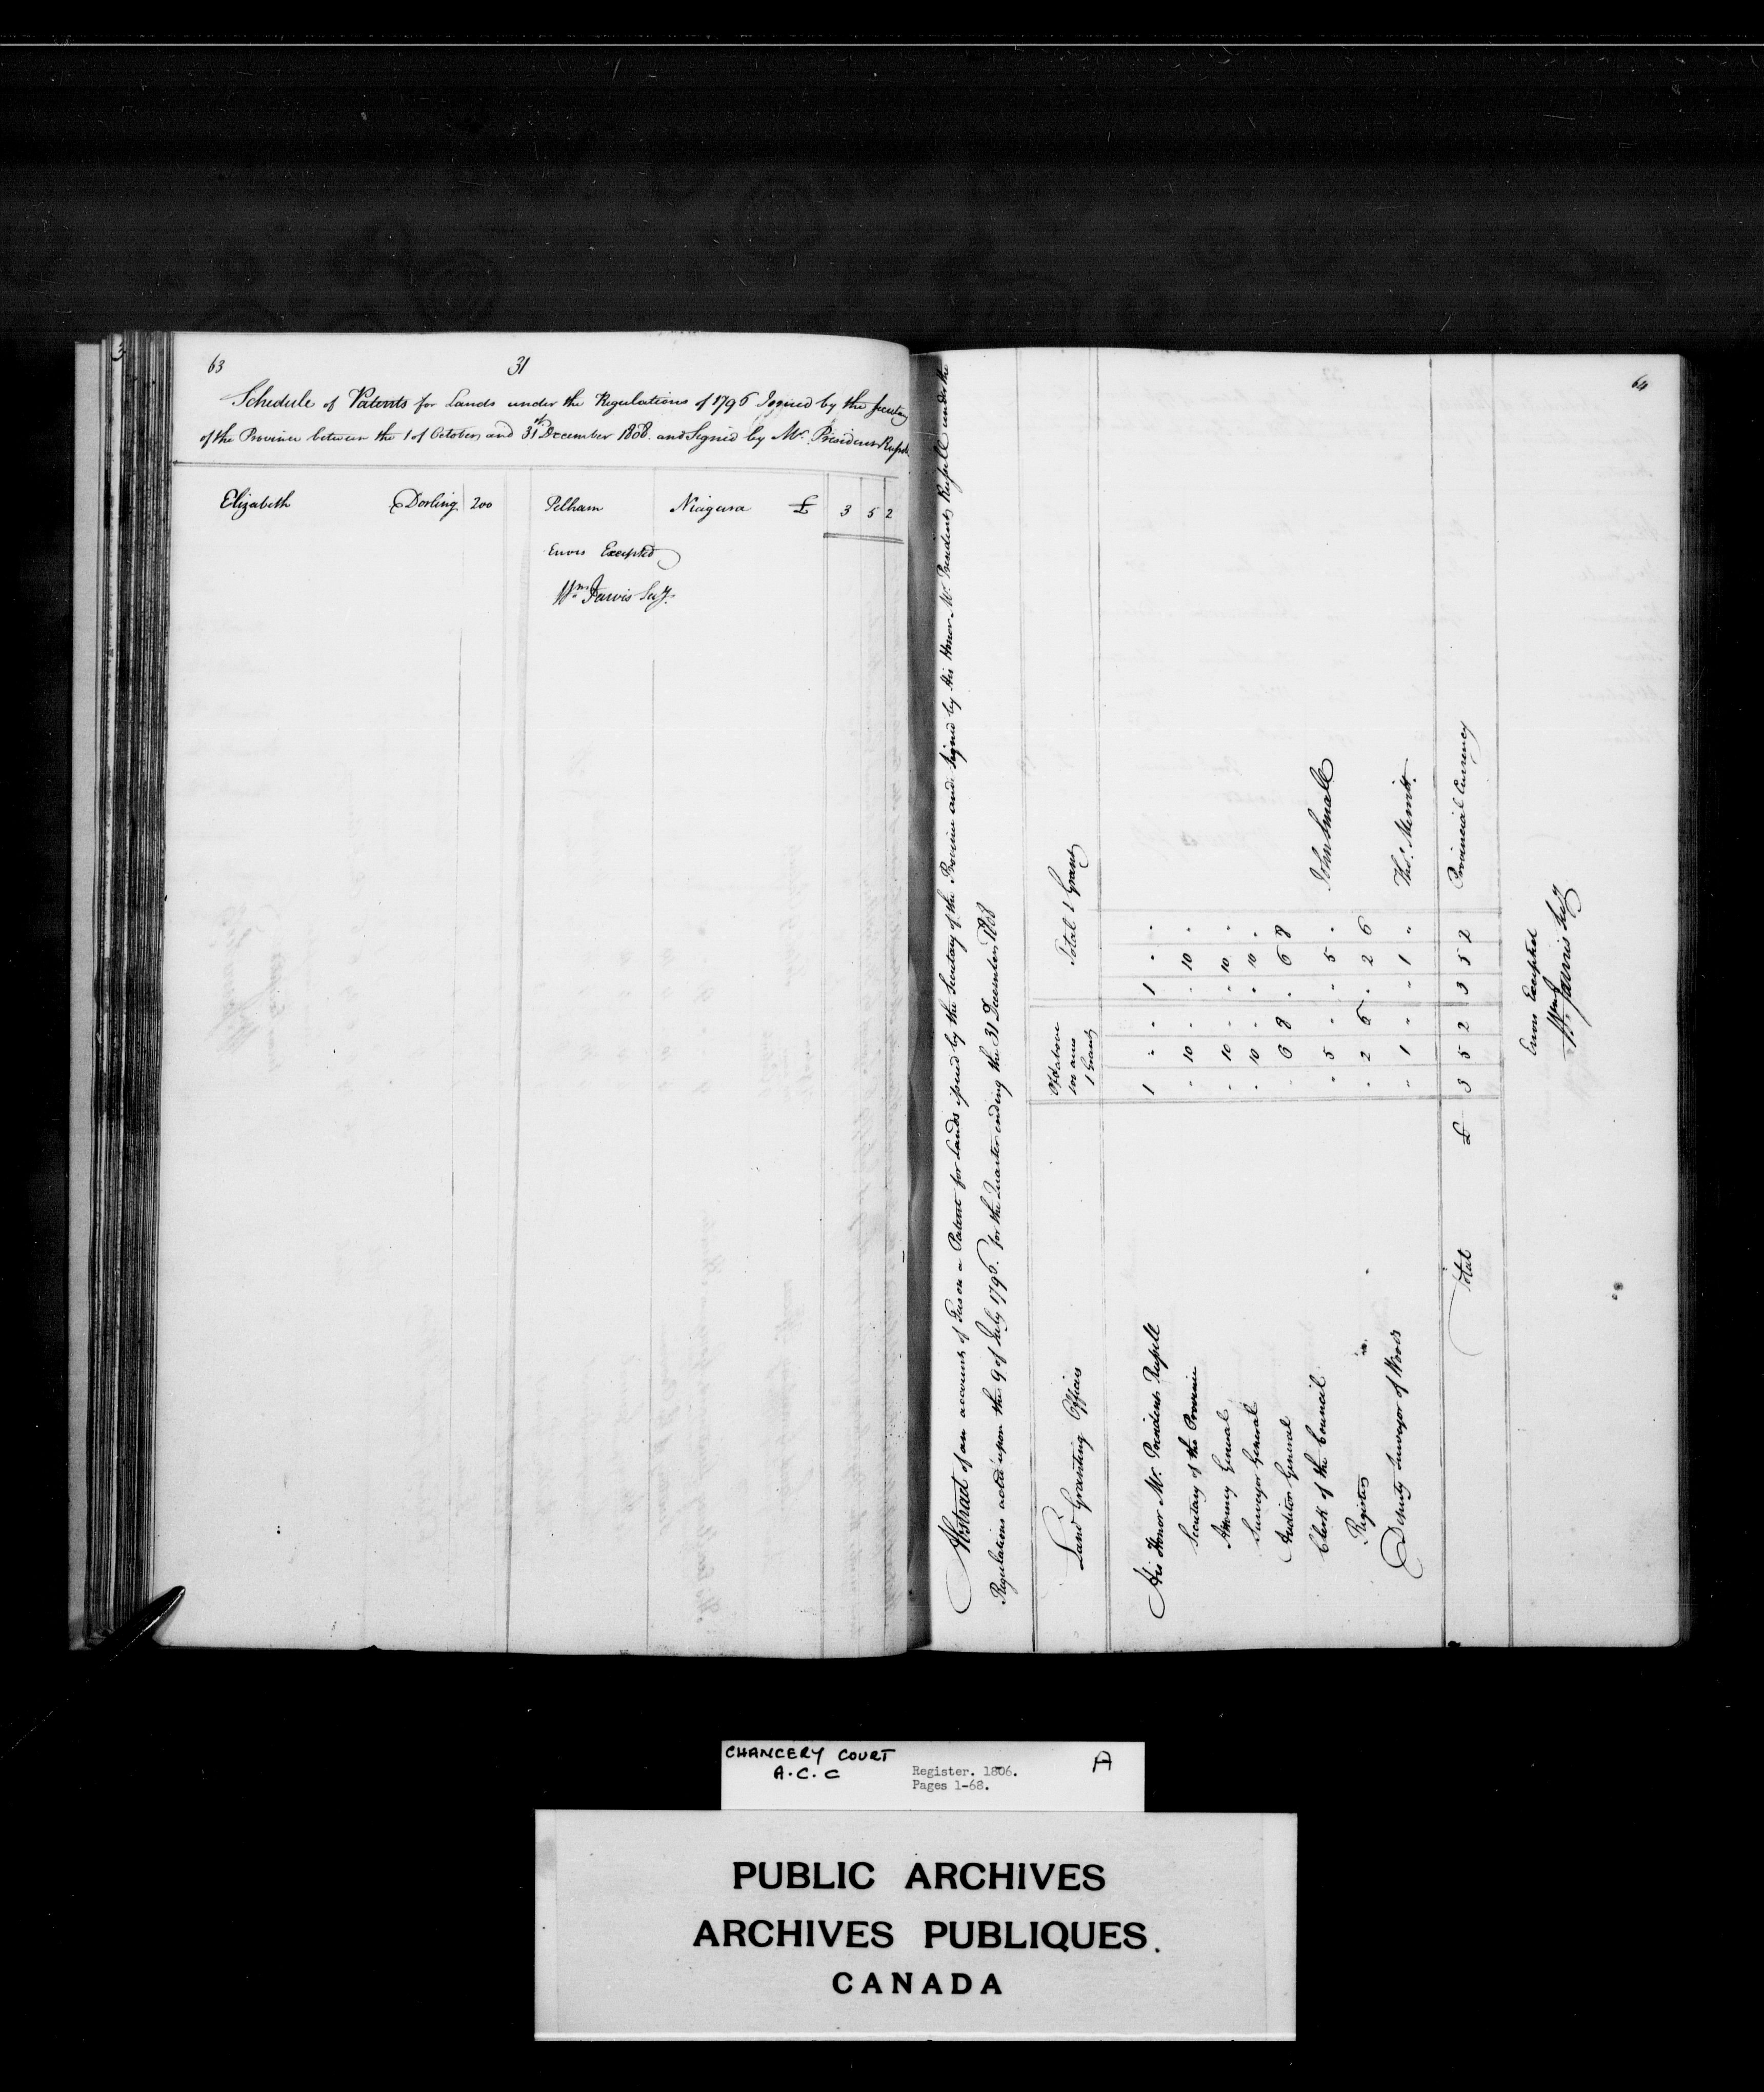 63 31
Schedule of Patents for Lands under the Regulations of 1796 Issued by the Secretary
of the Province between the 1 of October and 31st December 1808. and Signed by Mr. President Russell
Elizabeth Dorling 200 Pelham Niagara £ 3 5 2
Errors Excepted
Wm. Jarvis Secy.
64
Abstract of an account of Fees on a Patent for Lands issued by the Secretary of the Province and signed by His Honor Mr. President Russell under the
Regulations acted upon the 9 of July 1796. for the Quarter ending the 31 December 1808
Land Granting Officers
Of & above 100 acres 1 Grant
Total 1 Grant
His Honor Mr. President Russell 1 " " 1 " "
Secretary of the Province " 10 " " 10 "
Attorney General " 10 " " 10 "
Surveyor General " 10 " " 10 "
Auditor General " 6 8 " 6 8
Clerk of the Council " 5 " " 5 " John Small
Register " 2 6 " 2 6
Deputy Surveyor of Woods " 1 " " 1 " Thos. Merritt.
Total £ 3 5 2 3 5 2 Provincial Currency
Errors Excepted
Wm. Jarvis Secy
CHANCERY COURT
A.C.C
Register. 1806.
Pages 1-68.
A
PUBLIC ARCHIVES
ARCHIVES PUBLIQUES.
CANADA